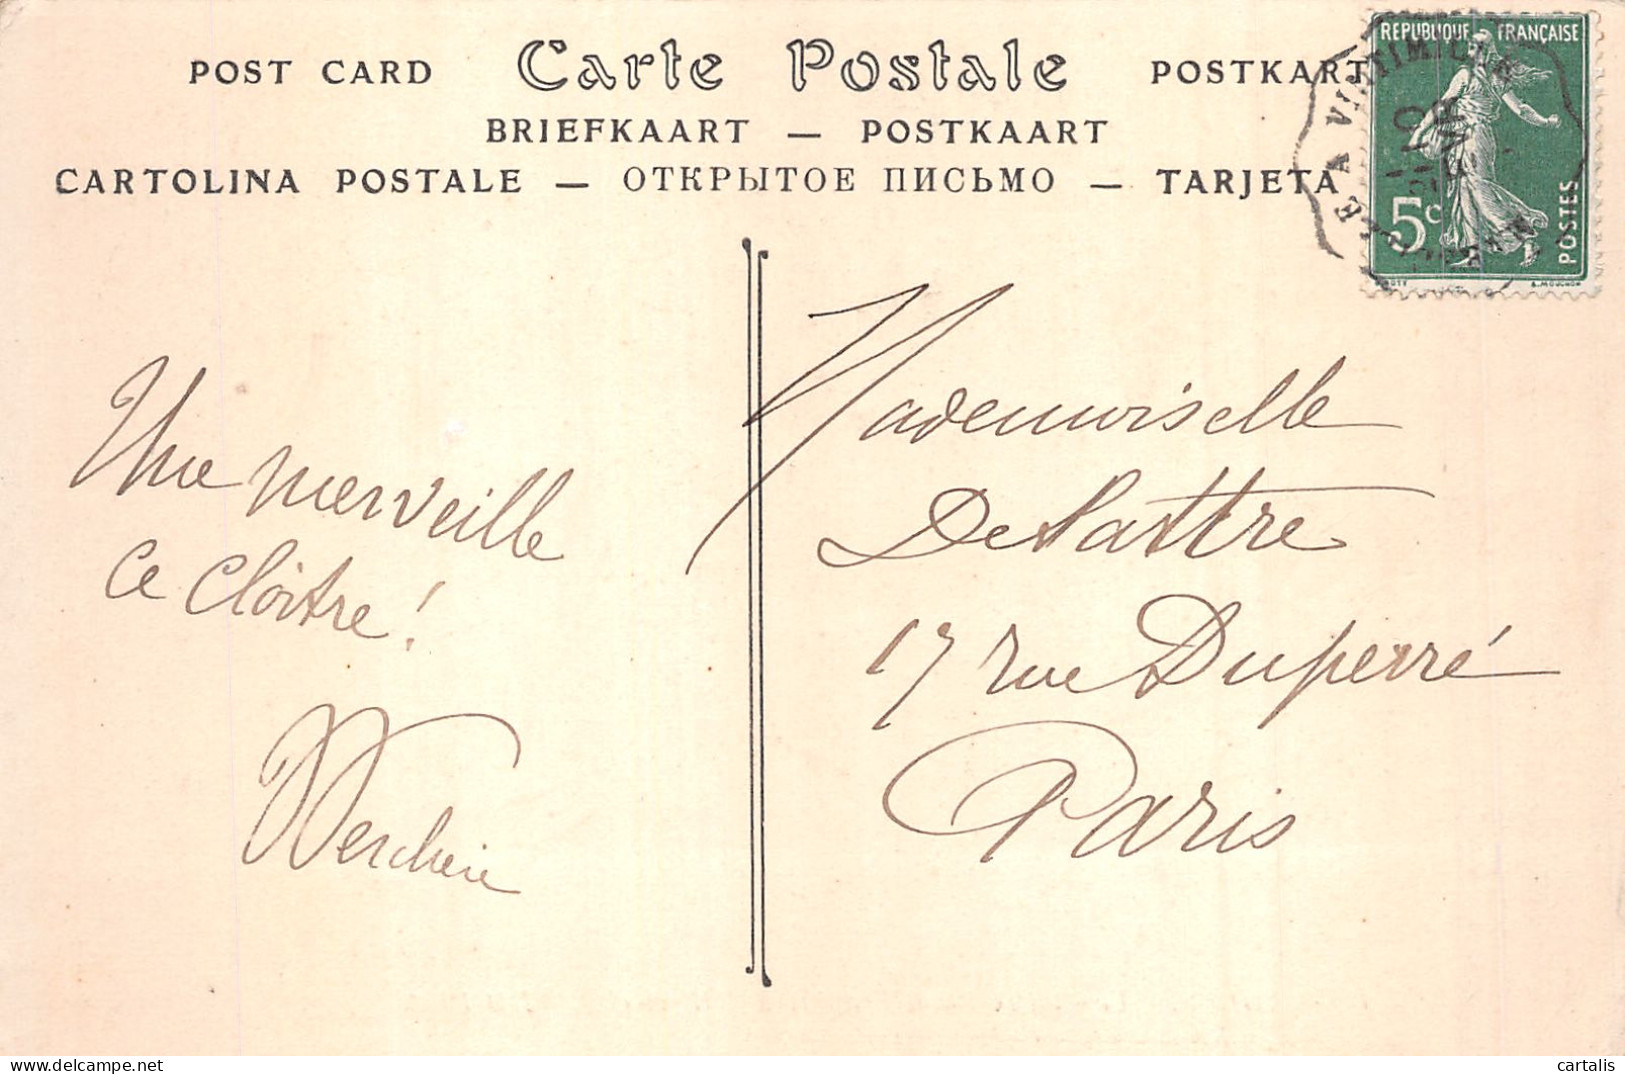 POST CARD Carte Postale POSTKARTE
BRIEFKAART — POSTKAART
CARTOLINA POSTALE — ОТКРЫТОЕ ПИСЬМО — TARJETA
REPUBLIQUE FRANÇAISE
5c
POSTES
A. MOUCHON
A VINTIMILLE
Une merveille
ce cloître!
Mademoiselle
Delattre
17 rue Duperré
Paris
cartalis